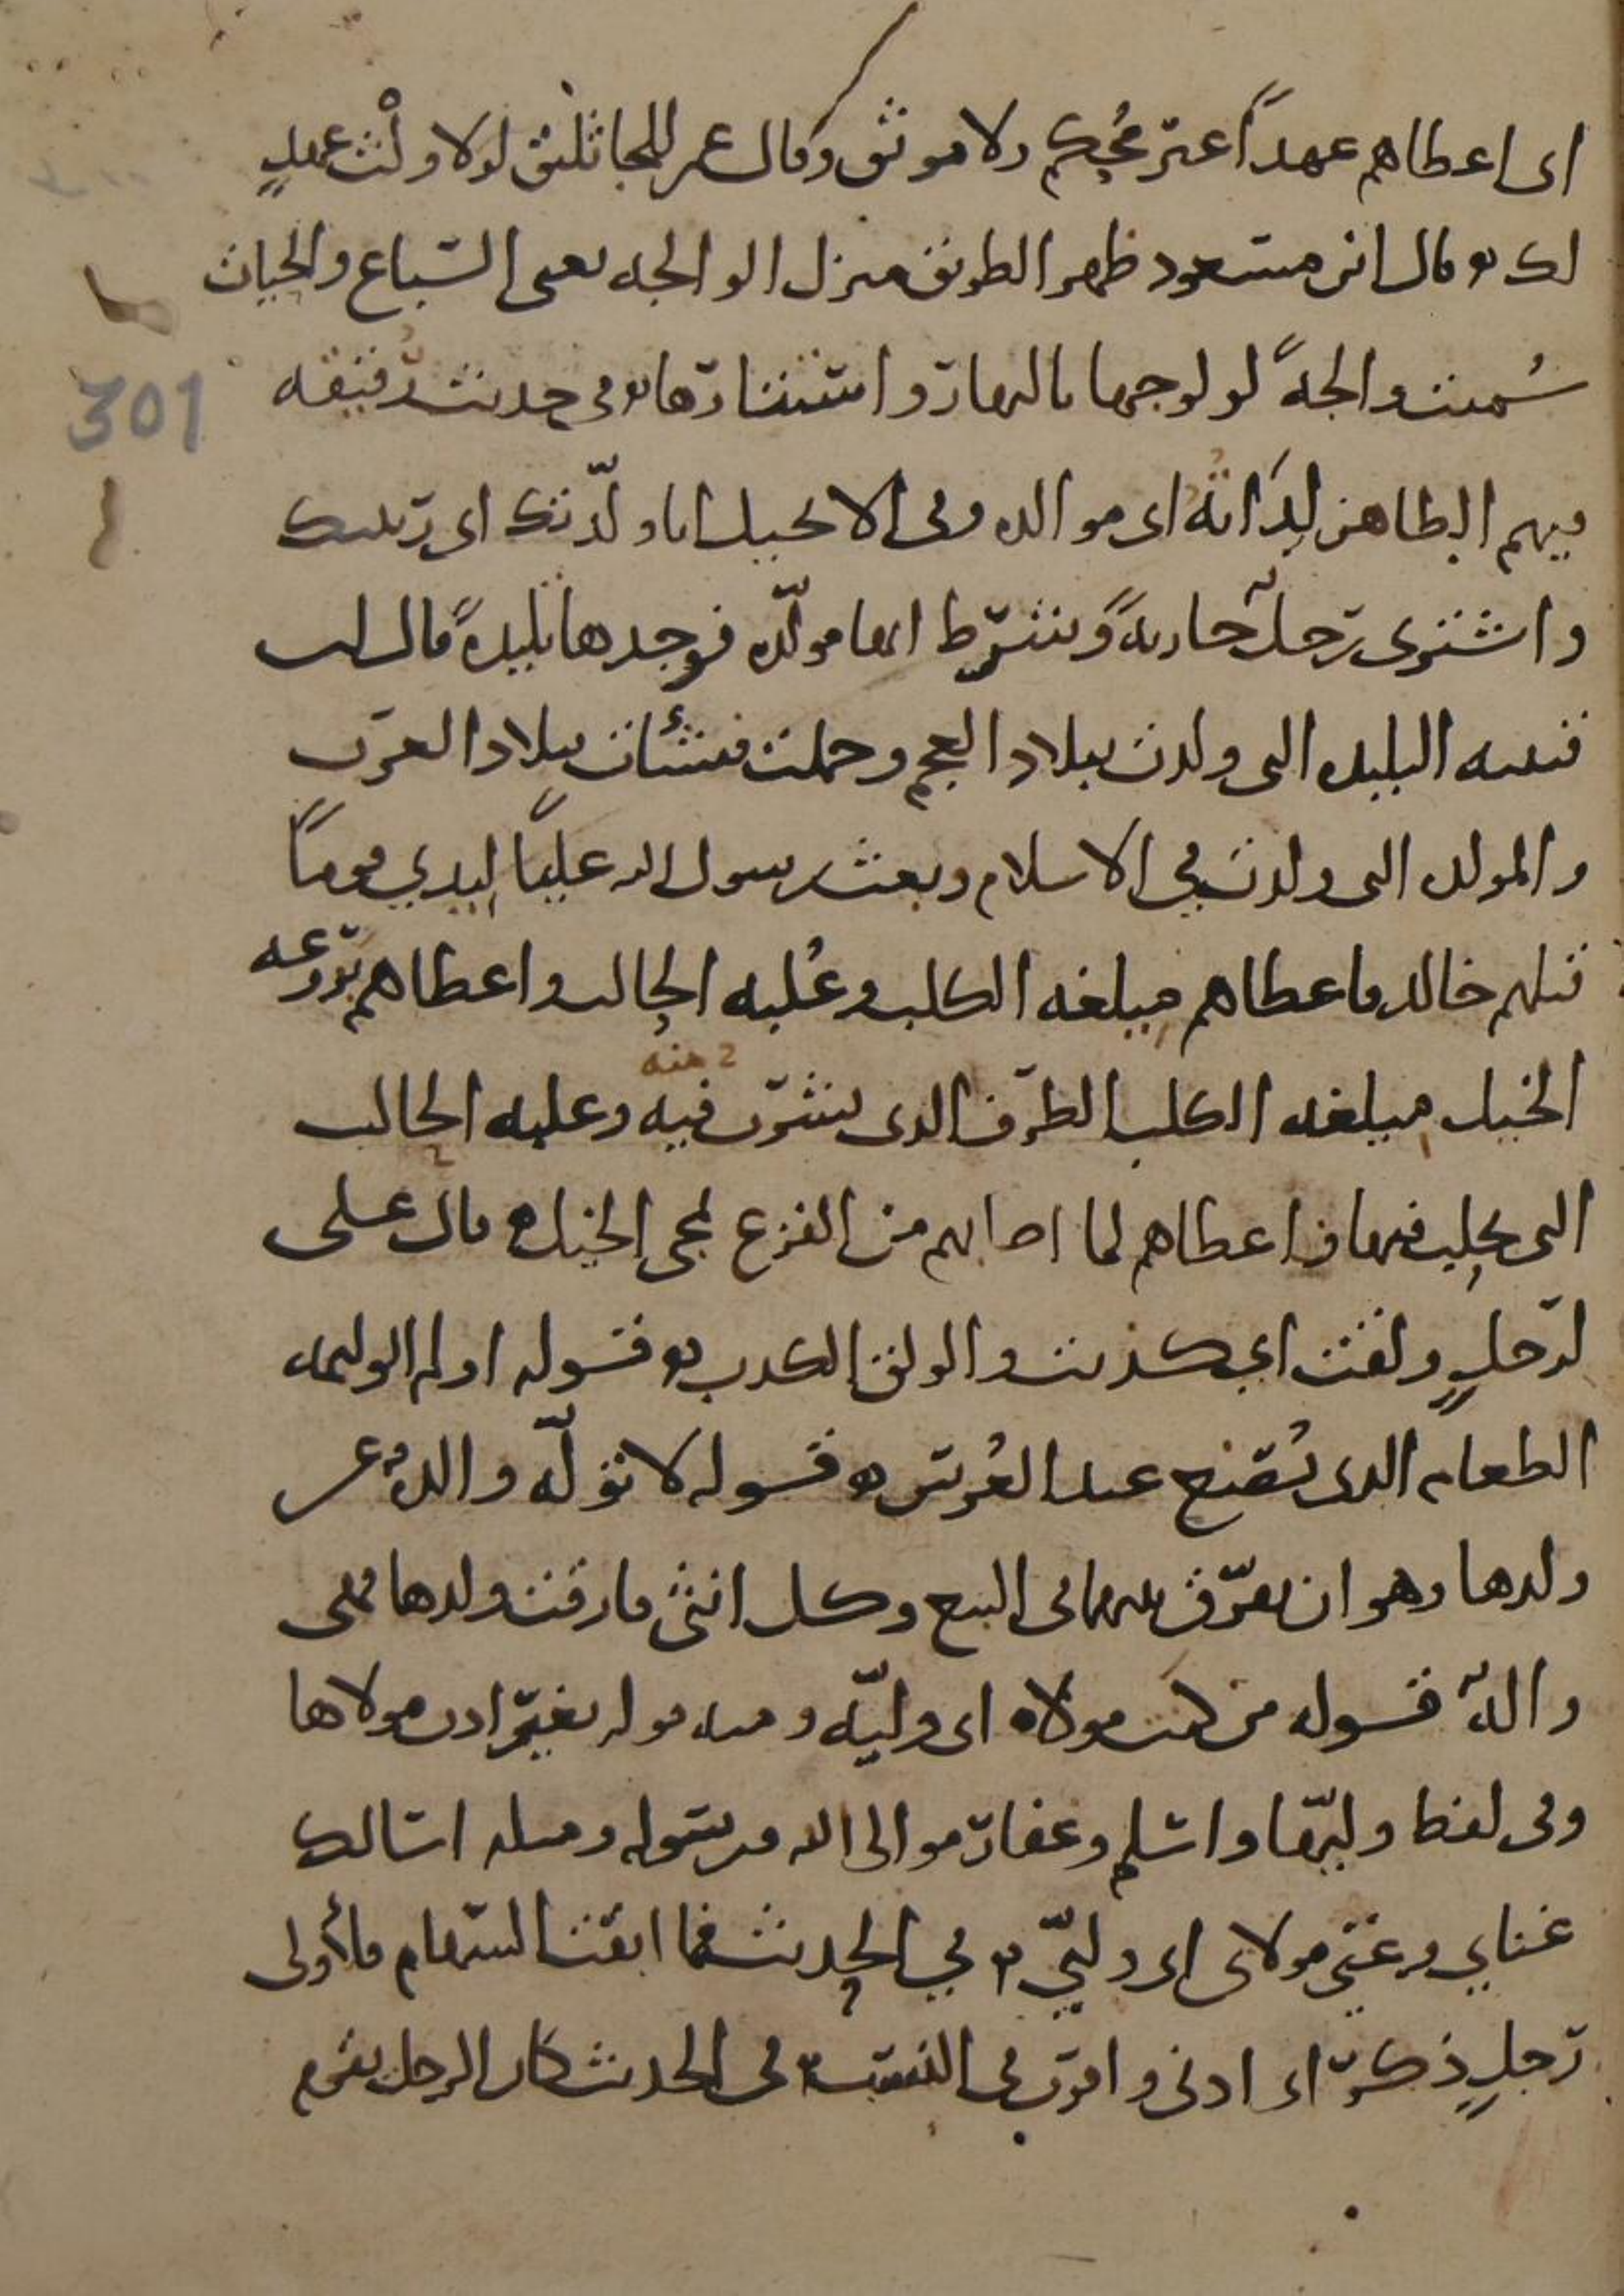 اى اعطاهم عهداً غير محكم ولا موثق وقال عمر للجاثليق لولا ولْث عهدٍ
لك ه وقال ابن مسعود ظهر الطريق منزل الوالجه يعنى السّباع والحيات
سُميت والجةً لولوجها بالنهار واستتارها ه فى حديث رقيقه
فيهم الطاهر لِدَاتُه اى موالده وفى الانجيل انا ولّدتك اى ربيتك
واشترى رجلٌ جاريةً وشرط انها مولّده فوجدها تليدةً قال ابن
قتيبه التليده التى ولدت ببلاد العجم وحملت فنشأت ببلاد العرب
والمولده التى ولدت في الاسلام وبعث رسول الله عليّاً ليدي قوماً
قتلهم خالد فاعطاهم ميلغه الكلب وعُلبه الحالب واعطاهم بروعه
الخيل ميلغه الكلب الظرف الذى يشرب فيه وعلبه الحالب
منه
التى يحلب فيها واعطاهم لما اصابهم من الفزع لمجى الخيل ه قال على
لرجلٍ ولقت اي كذبت والولق الكذب ه قوله اولم الوليمه
الطعام الذى يُصنع عند العُرس ه قوله لا تولّه والدةٌ عن
ولدها وهو ان يفرّق بينهما فى البيع وكل انثى فارقت ولدها فهى
والهٌ قوله من كنت مولاه اى وليّه ومنه قوله بغير اذن مولاها
وفى لفظ وليّها واسلم وغفار موالى الله ورسوله ومثله اسالك
غناي وغنى مولاى اى وليّي ه في الحديث فما ابقت السّهام فلأولى
رجلٍ ذكرٍ اى ادنى واقرب فى النسب ه فى الحديث كان الرجل يقوم
301